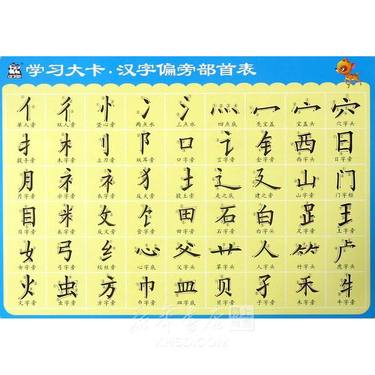 学习大卡·汉字偏旁部首表
亻 彳 忄 冫 氵 灬 冖 宀 穴
单人旁 双人旁 竖心旁 两点水 三点水 四点底 秃宝盖 宝盖头 穴字头
扌 木 刂 阝 口 讠 钅 西 日
木字旁 立刀旁 双耳旁 口字旁 言字旁 金字旁 西字头 日字旁
月 礻 衤 犭 辶 廴 山 门
月字旁 走之底 建之旁 山字头 门字框
目 米 攵 饣 田 石 白 王
目字旁 米字旁 反文旁 田字旁 石字旁 白字旁 王字旁
女 弓 纟 心 父 艹 人 虍
女字旁 弓字旁 绞丝旁 心字底 父字头 草字头 人字头 竹字头 虎字头
火 虫 方 巾 皿 贝 子 禾 牛
火字旁 虫字旁 方字旁 巾字旁 皿字底 贝字旁 子字旁 禾字旁 牛字旁